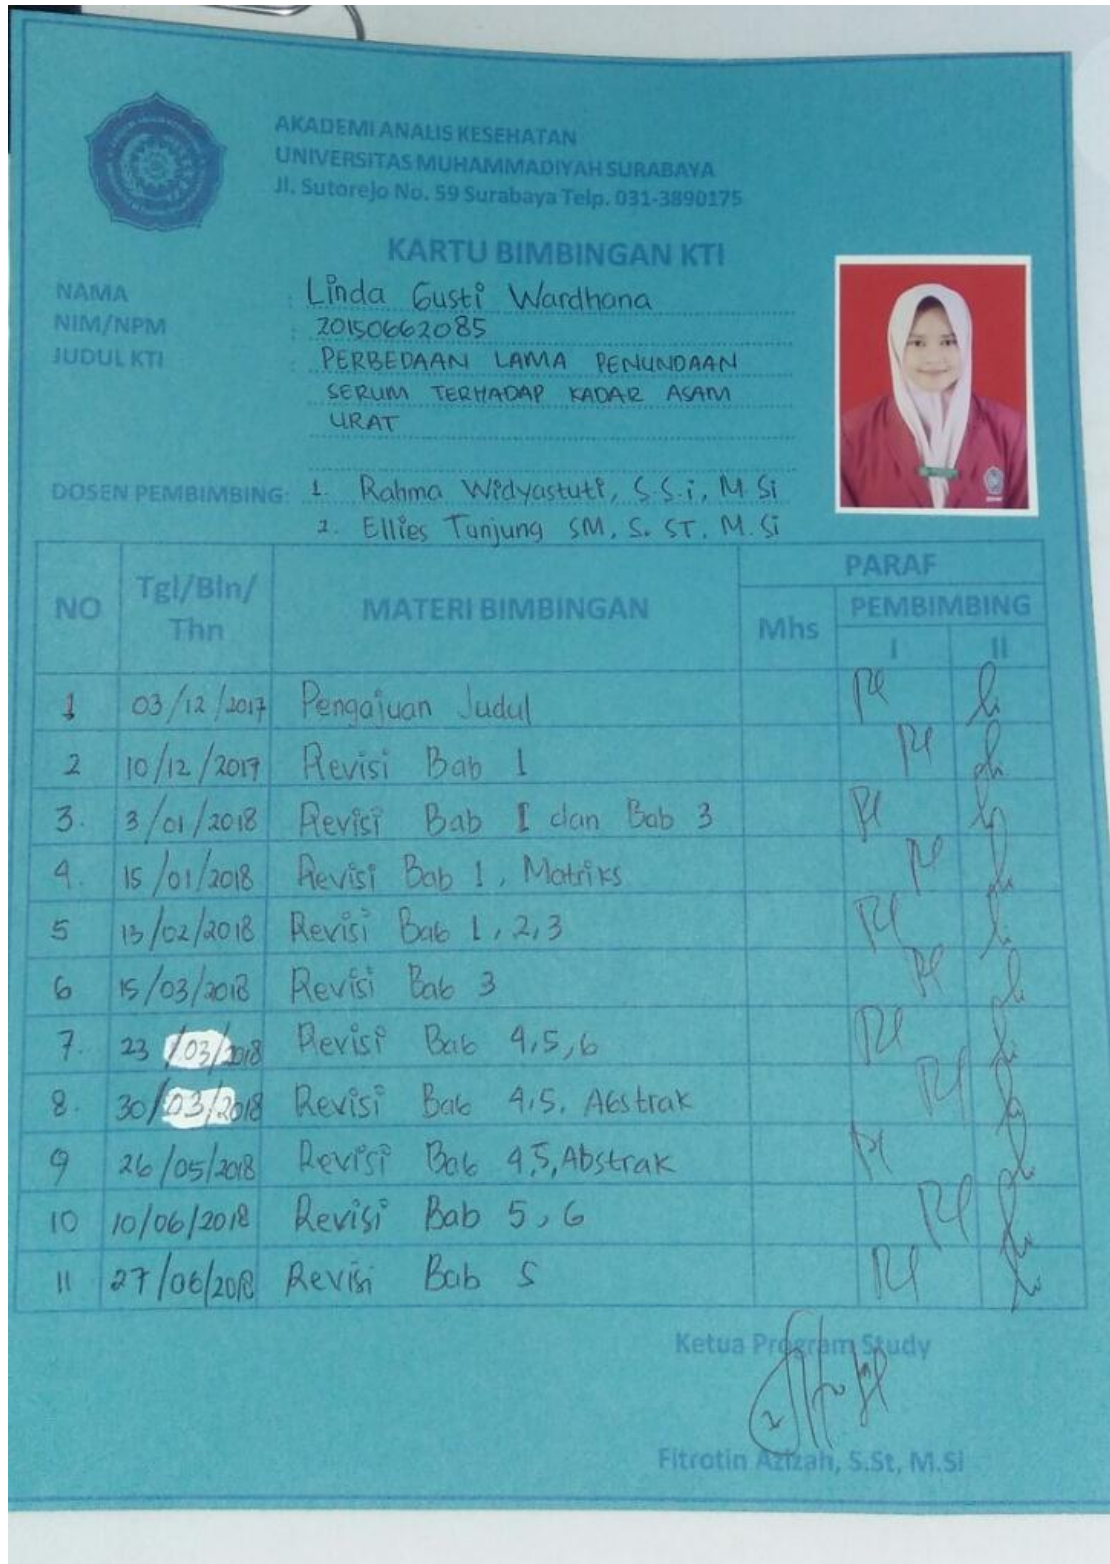 AKADEMI ANALIS KESEHATAN
UNIVERSITAS MUHAMMADIYAH SURABAYA
Jl. Sutorejo No. 59 Surabaya Telp. 031-3890175
KARTU BIMBINGAN KTI
NAMA : Linda Gusti Wardhana
NIM/NPM : 20150662085
JUDUL KTI : PERBEDAAN LAMA PENUNDAAN
SERUM TERHADAP KADAR ASAM
URAT
DOSEN PEMBIMBING: 1. Rahma Widyastuti, S.S.i, M.Si
2. Ellies Tunjung SM, S. ST, M.Si
NO Tgl/Bln/Thn MATERI BIMBINGAN PARAF
Mhs PEMBIMBING
I II
1 03/12/2017 Pengajuan Judul
2 10/12/2017 Revisi Bab 1
3. 3/01/2018 Revisi Bab I dan Bab 3
4. 15/01/2018 Revisi Bab 1, Matriks
5 13/02/2018 Revisi Bab 1,2,3
6 15/03/2018 Revisi Bab 3
7. 23/03/2018 Revisi Bab 4,5,6
8. 30/03/2018 Revisi Bab 4,5, Abstrak
9 26/05/2018 Revisi Bab 4,5,Abstrak
10 10/06/2018 Revisi Bab 5,6
11 27/06/2018 Revisi Bab 5
Ketua Program Study
Fitrotin Azizah, S.St, M.Si